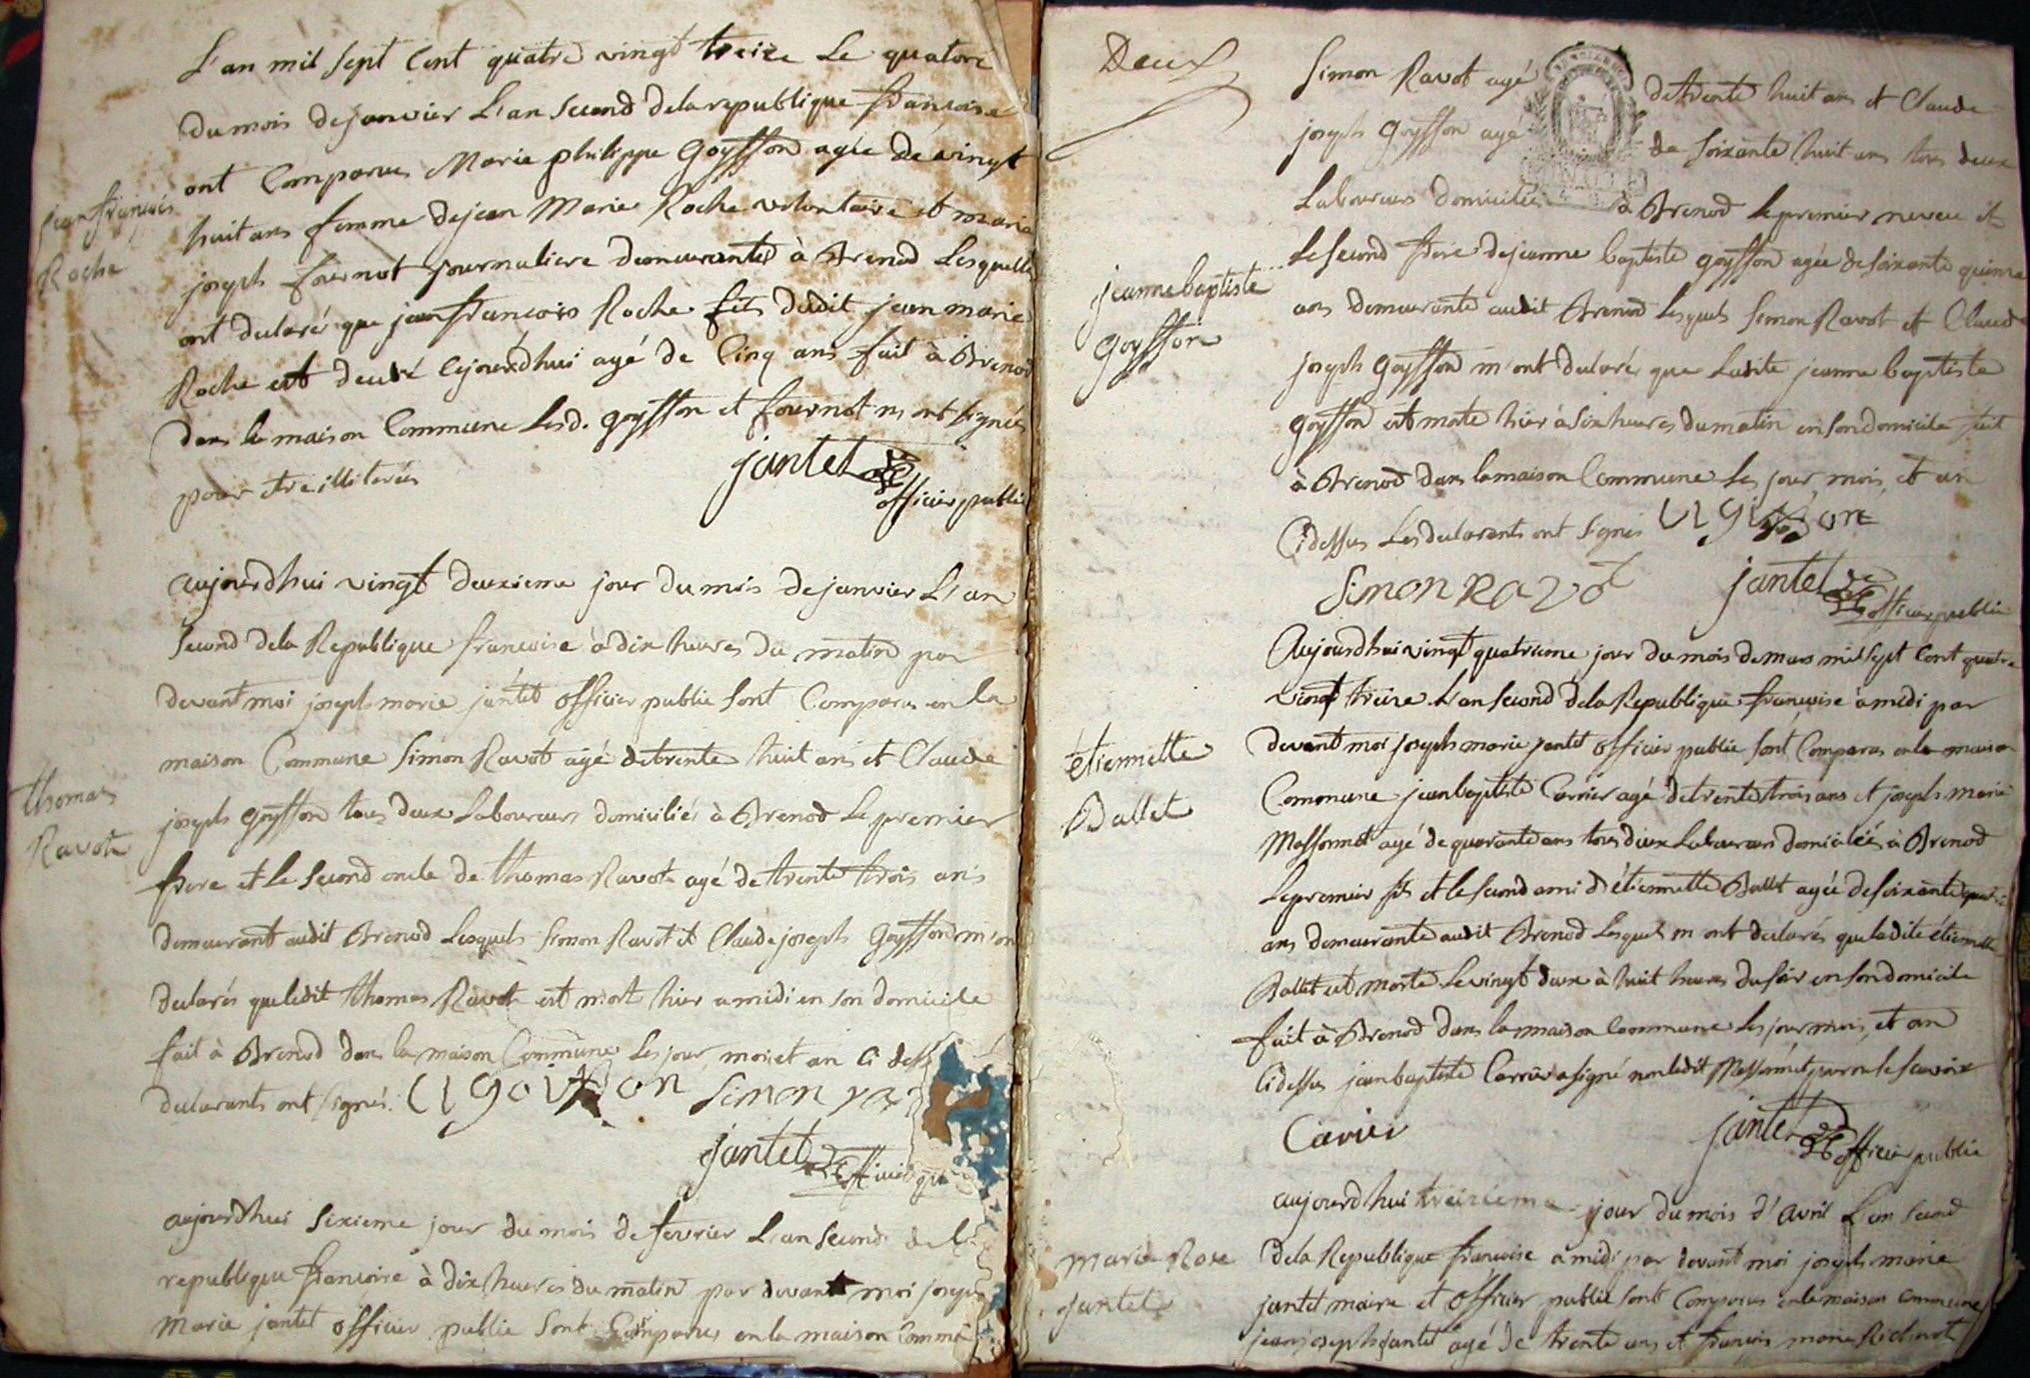 L'an mil sept cent quatre vingt treize le quatorze
du mois de janvier L'an second de la republique francoise
ont comparus Marie philippe Goyffon agée de vingt
jean françois
huit ans femme de jean Marie Roche volontaire et marie
Roche
joseph fournot journaliere demeurantes à Brenod Lesquelles
ont declaré que jean françois Roche fils dudit jean marie
Roche est decedé cejourdhui agé de Cinq ans fait à Brenod
dans la maison Commune Lesd. goyffon et fournot n'ont signés
pour etre illiterés
jantet
officier public
aujourdhui vingt deuxieme jour du mois de janvier L'an
second dela Republique francoise à dix heures du matin par
devant moi joseph marie jantet officier public sont Comparus en la
maison Commune Simon Ravot agé de trente huit ans et Claude
thomas
Ravot
joseph goyffon tous deux Laboureurs domiciliés à Brenod Le premier
frere et le second oncle de thomas Ravot agé de trente trois ans
demeurant audit Brenod Lesquels Simon Ravot et Claude joseph Goyffon m'ont
declarés que ledit thomas Ravot est mort hier a midi en son domicile
fait à Brenod dans la maison Commune Les jour, mois et an Ci dess
declarants ont signés. C1 goiffon Simon ra
jantet
officier pu
aujourdhui sixieme jour du mois de fevrier L'an second de la
republique francoise à dix heures du matin par devant moi joseph
Marie jantet officier public sont Comparus en la maison Commu
Deux
Simon Ravot agé de trente huit ans et Claude
joseph goyffon agé de soixante huit ans tous deux
Laboureurs domiciliés à Brenod Le premier neveu et
Le second frere de jeanne baptiste goyffon agée de soixante quinze
jeanne baptiste
goyffon
ans demeurante audit Brenod Lesquels Simon Ravot et Claude
joseph goyffon m'ont declarés que Ladite jeanne baptiste
goyffon est morte hier à six heures du matin en son domicile fait
à Brenod dans la maison Commune Les jour, mois, et an
Cidessus Les declarants ont signés C1 goiffon
Simon Ravot
jantet
officier public
Aujourdhui vingt quatrieme jour du mois de mars mil sept cent quatre
vingt treize L'an second dela Republique francoise à midi par
devant moi joseph marie jantet officier public sont Comparus en la maison
étiennette
Ballet
Commune jean baptiste Carrier agé de trente trois ans et joseph marie
Massonnet agé de quarante ans tous deux Laboureurs domiciliés à Brenod
Le premier fils et le second ami d'étiennette Ballet agée de soixante quatre
ans demeurante audit Brenod Lesquels m'ont declarés que ladite étiennette
Ballet est morte Le vingt deux à huit heures du soir en son domicile
fait à Brenod dans la maison Commune Les jour mois, et an
Cidessus jean baptiste Carrier a signé non ledit Massonnet pour ne le scavoir
Carier
jantet
officier public
aujourdhui treizieme jour du mois d'avril L'an second
marie Rose
jantet
dela Republique francoise à midi par devant moi joseph marie
jantet maire et officier public sont Comparus en la maison commune
jean joseph jantet agé de trente ans et françois marie Richerot